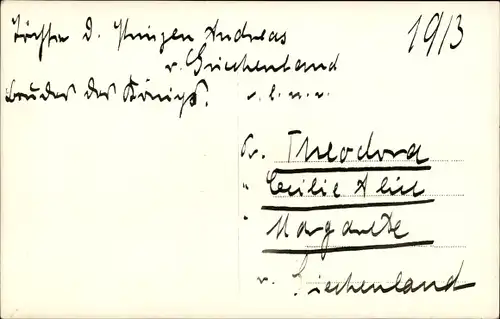 Töchter d. Prinzen Andreas
v. Griechenland
Bruder des Königs.
1913
v. l. n. r.
Pr. Theodora
" Cecilie Alice
" Margarete
v. Griechenland